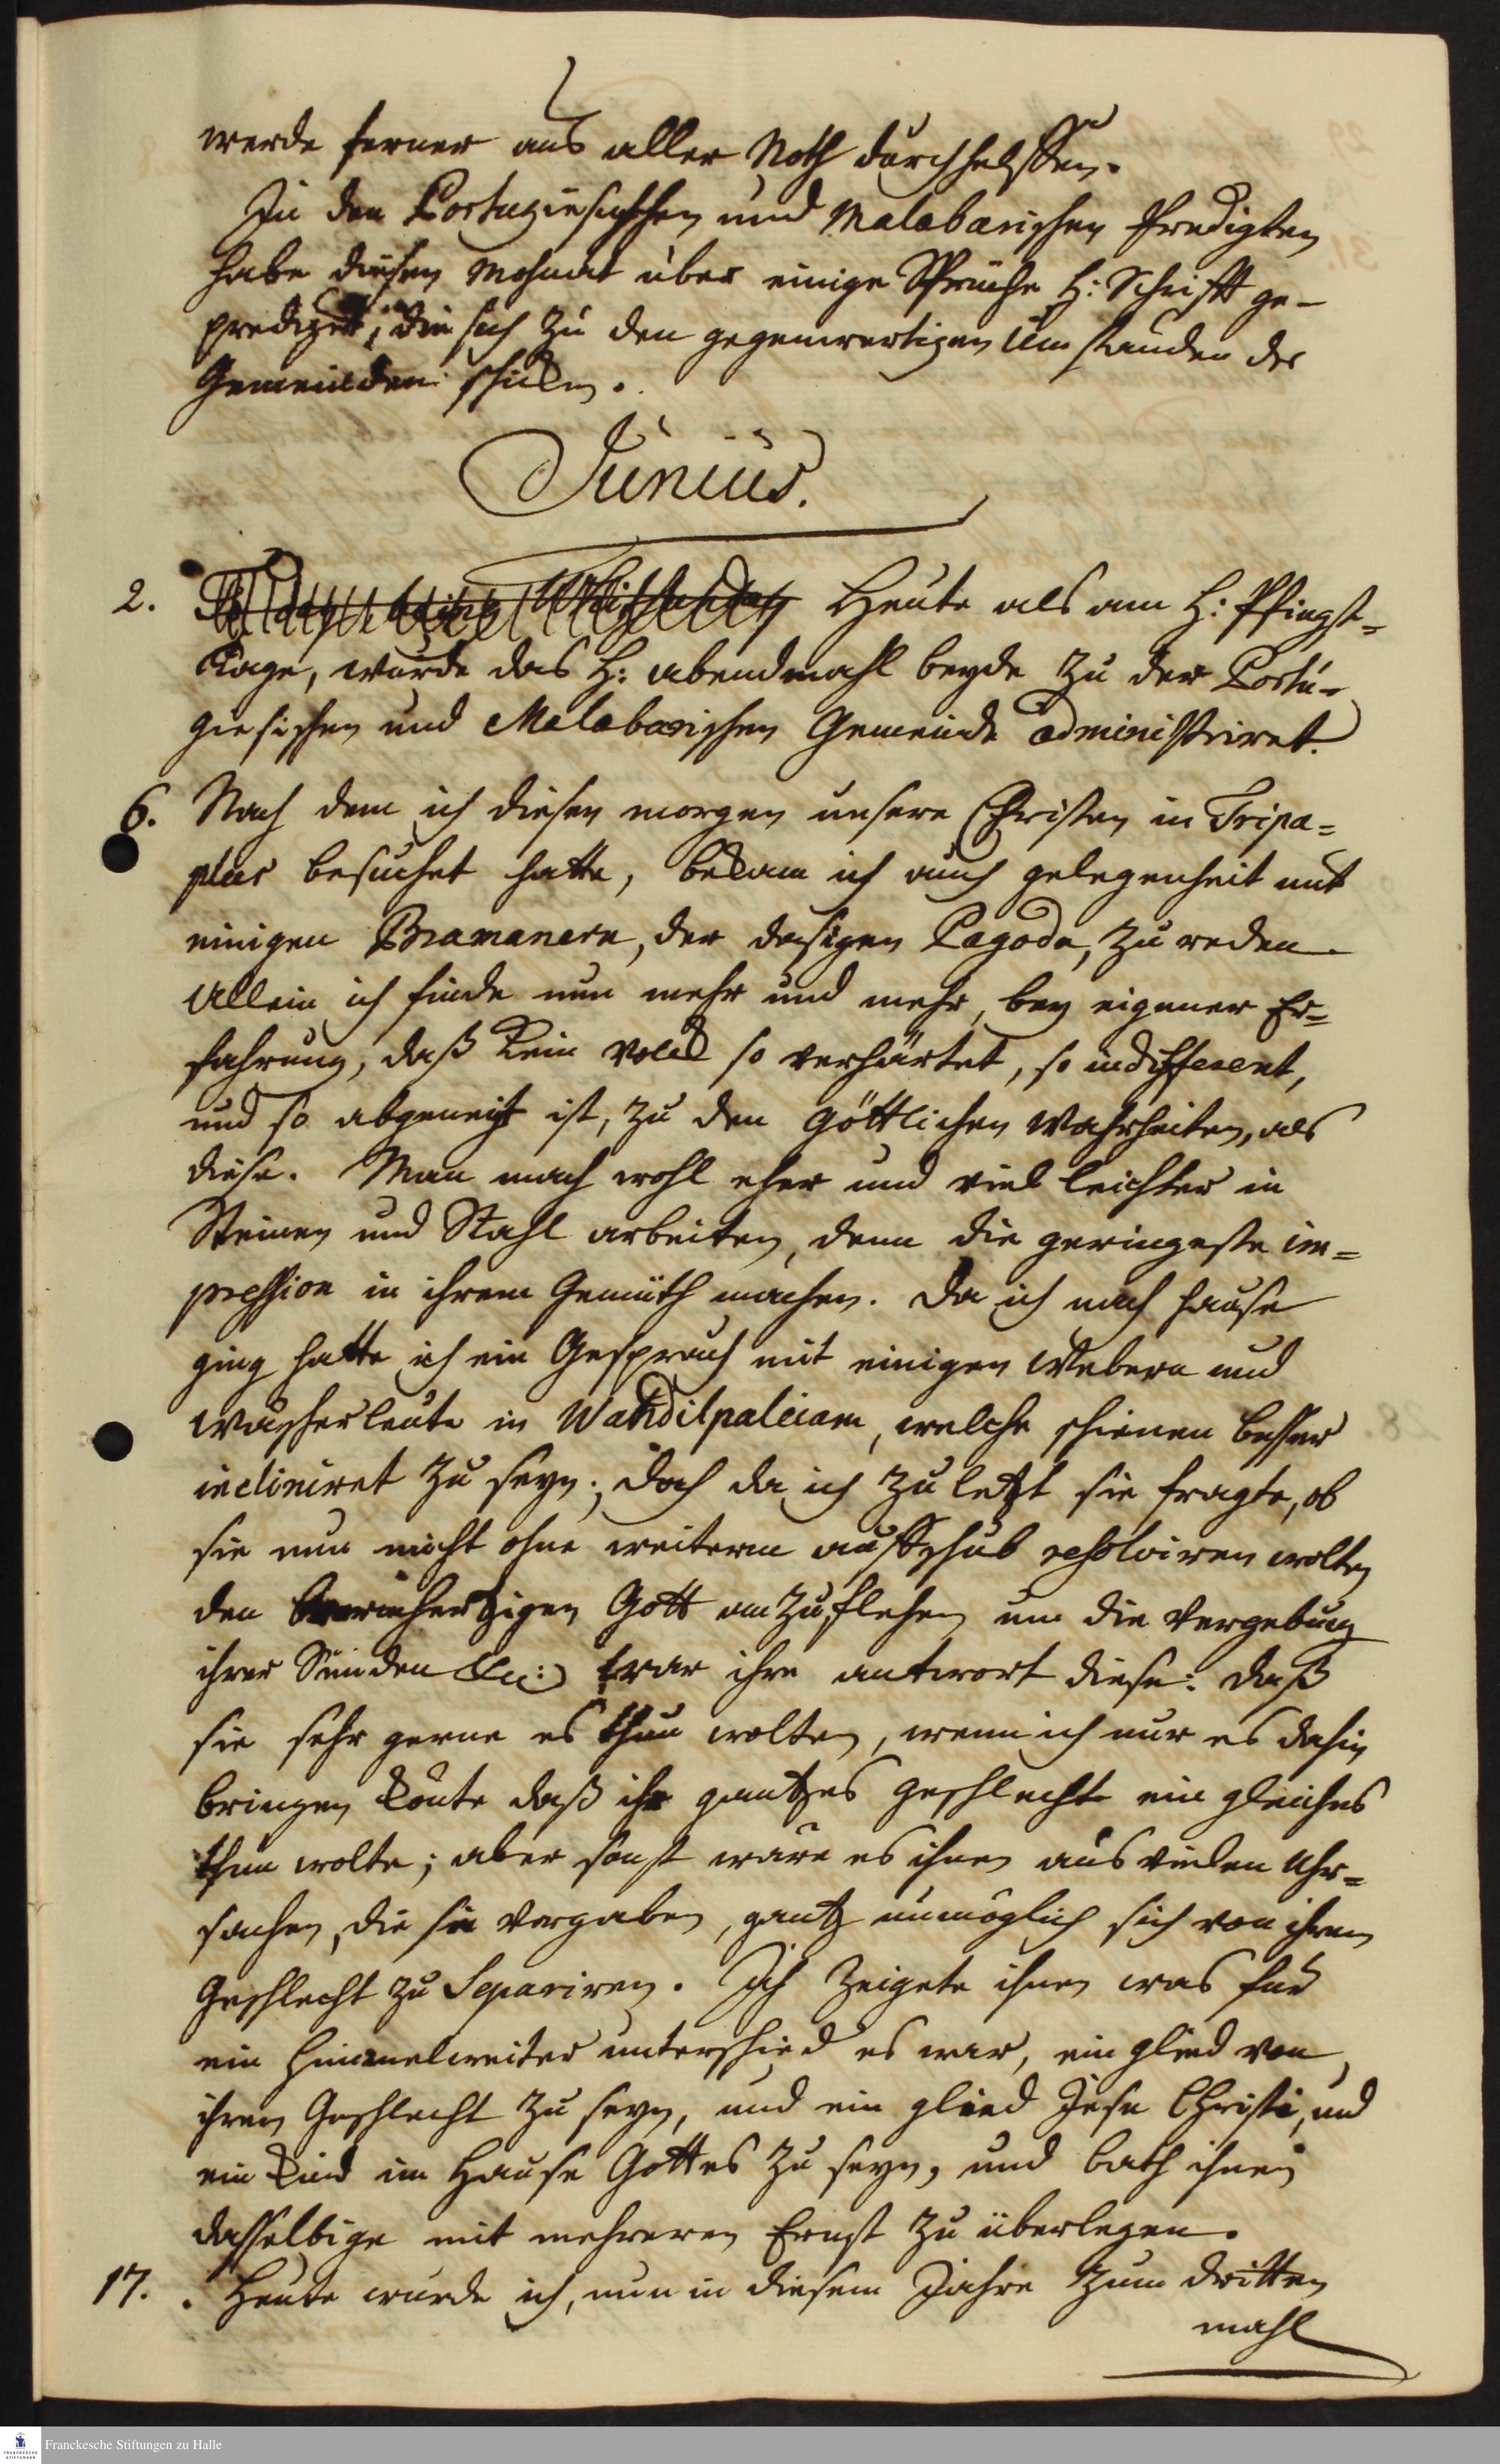 werde ferner aus aller Noth durchhelffen.
In den Portugiesischen und Malabarischen Predigten
habe diesen Mohnat über einige Sprüche H: Schrifft ge-
prediget, die sich zu den gegenwertigen Umständen der
Gemeinden schicken.
Junius.
2. Heute als am H: Pfingst=
Tage, wurde das H: abendmahl beyde zu der Portu-
giesischen und Malabarischen Gemeinde administriret.
6. Nach dem ich diesen morgen unsere Christen in Tripa=
plur besuchet hatte, bekam ich auch gelegenheit mit
einigen Bramanern, der dasigen Pagoda, zu reden.
Allein ich finde nun mehr und mehr, bey eigener Er=
fahrung, daß kein volck so verhärtet, so indifferent,
und so abgeneigt ist, zu den göttlichen Wahrheiten, als
diese. Man mach wohl eher und viel leichter in
Steinen und Stahl arbeiten, denn die geringeste im=
pression in ihrem Gemüth machen. Da ich nach hause
ging hatte ich ein Gesprach mit einigen Webern und
Wäscherleute in Wandilpaleiam, welche schienen besser
incliniret zu seyn; doch da ich zuletzt sie fragte, ob
sie nun nicht ohne weiterm auffschub resolviren wolten
den barmhertzigen Gott anzuflehen um die Vergebung
ihrer Sünden &c: war ihre antwort diese: daß
sie sehr gerne es thun wolten, wenn ich nur es dahin
bringen könte daß ihr gantzes geschlecht ein gleiches
thun wolte; aber sonst wäre es ihnen aus vielen Uhr=
sachen, die sie vorgaben, gantz unmöglich sich von ihrem
Geschlecht zu Separiren. Ich zeigete ihnen was für
ein himmelweiter unterschied es war, ein glied von
ihren Geschlecht zu seyn, und ein glied Jesu Christi, und
ein kind im Hause Gottes zu seyn, und bath ihnen
dasselbige mit mehreren Ernst zu überlegen.
17. Heute wurde ich, nun in diesem Jahre zum dritten
mahl
FRANCKESCHE STIFTUNGEN
Franckesche Stiftungen zu Halle